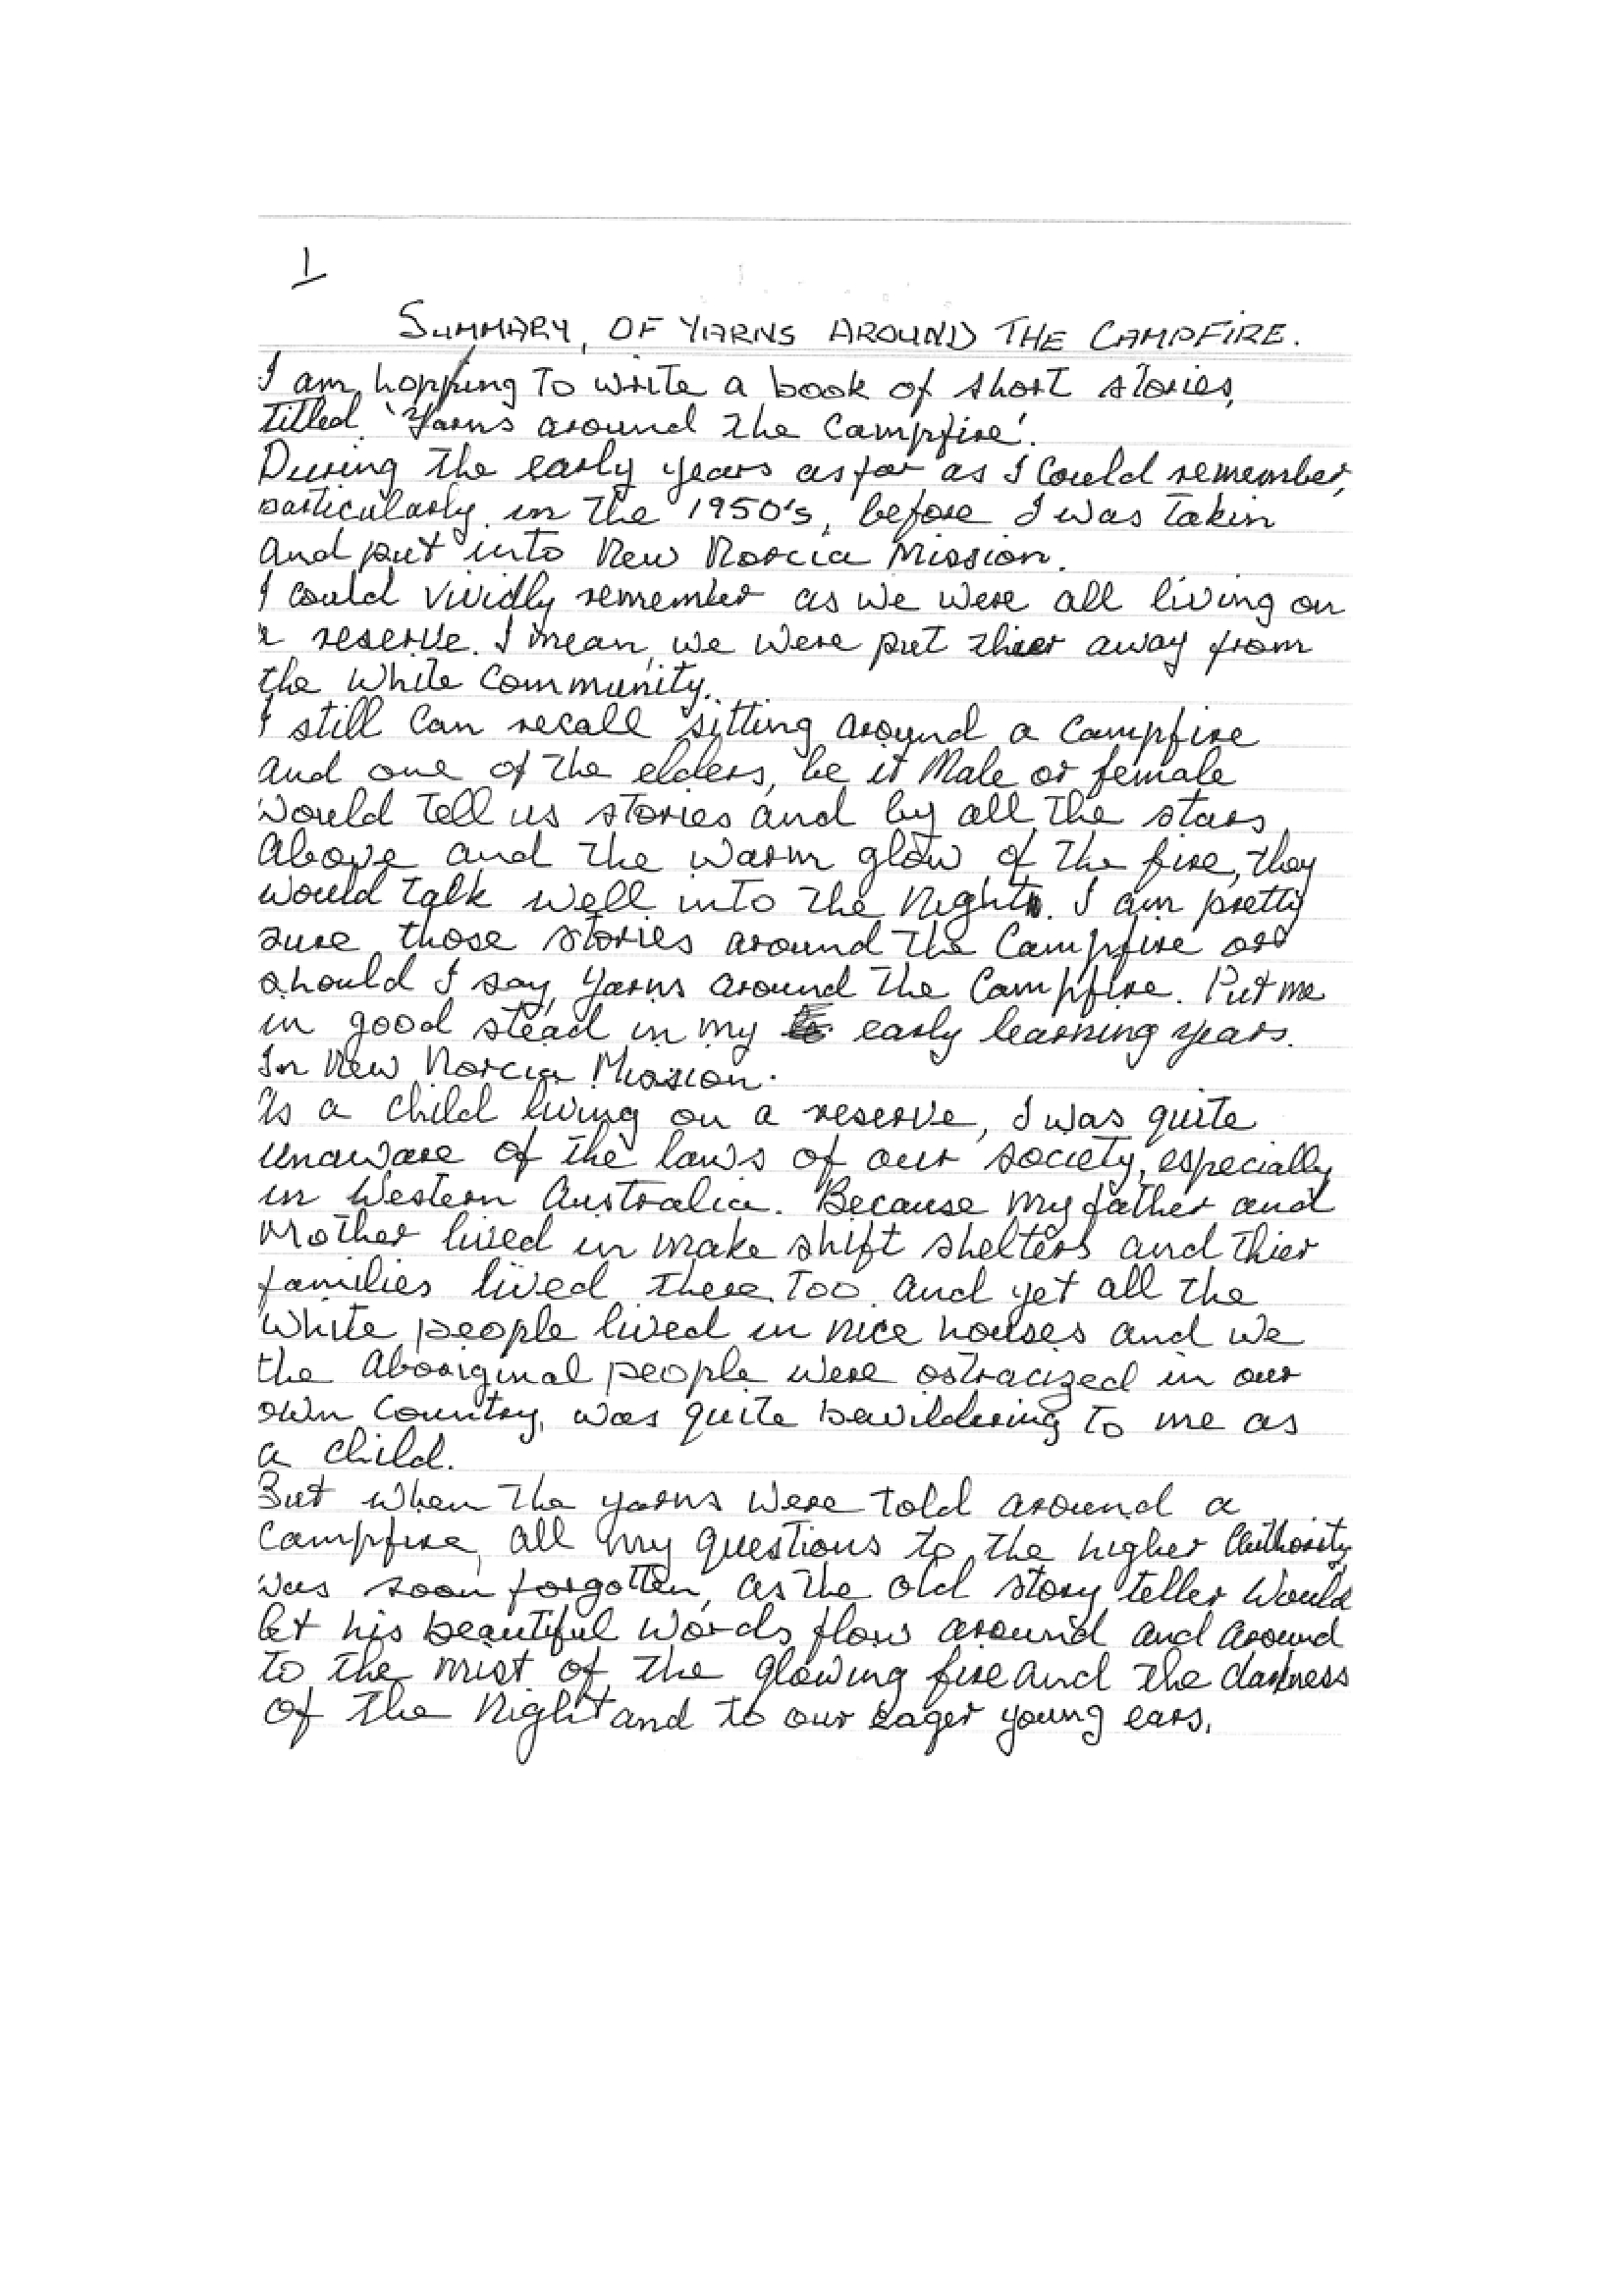 1
SUMMARY, OF YARNS AROUND THE CAMPFIRE.
I am hopping to write a book of short stories,
titled 'Yarns around the Campfire'.
During the early years as far as I could remember,
particularly in the 1950's, before I was takin
and put into New Norcia Mission.
I could vividly remember as we were all living on
a reserve. I mean, we were put thier away from
the white Community.
I still can recall sitting around a campfire
and one of the elders, be it Male or female
would tell us stories and by all the stars
above and the warm glow of the fire, they
would talk well into the Night. I am pretty
sure those stories around the Campfire or
should I say, yarns around the Campfire. Put me
in good stead in my early learning years.
In New Norcia Mission.
As a child living on a reserve, I was quite
unaware of the laws of our society, especially
in Western Australia. Because my father and
Mother lived in make shift shelters and thier
families lived there too and yet all the
White people lived in nice houses and we
the Aboriginal people were ostracized in our
own Country, was quite bewildering to me as
a child.
But when the yarns were told around a
Campfire, all my questions to the higher Authority,
was soon forgotten, as the old story teller would
let his beautiful words flow around and around
to the mist of the glowing fire and the darkness
of the Night and to our eager young ears.